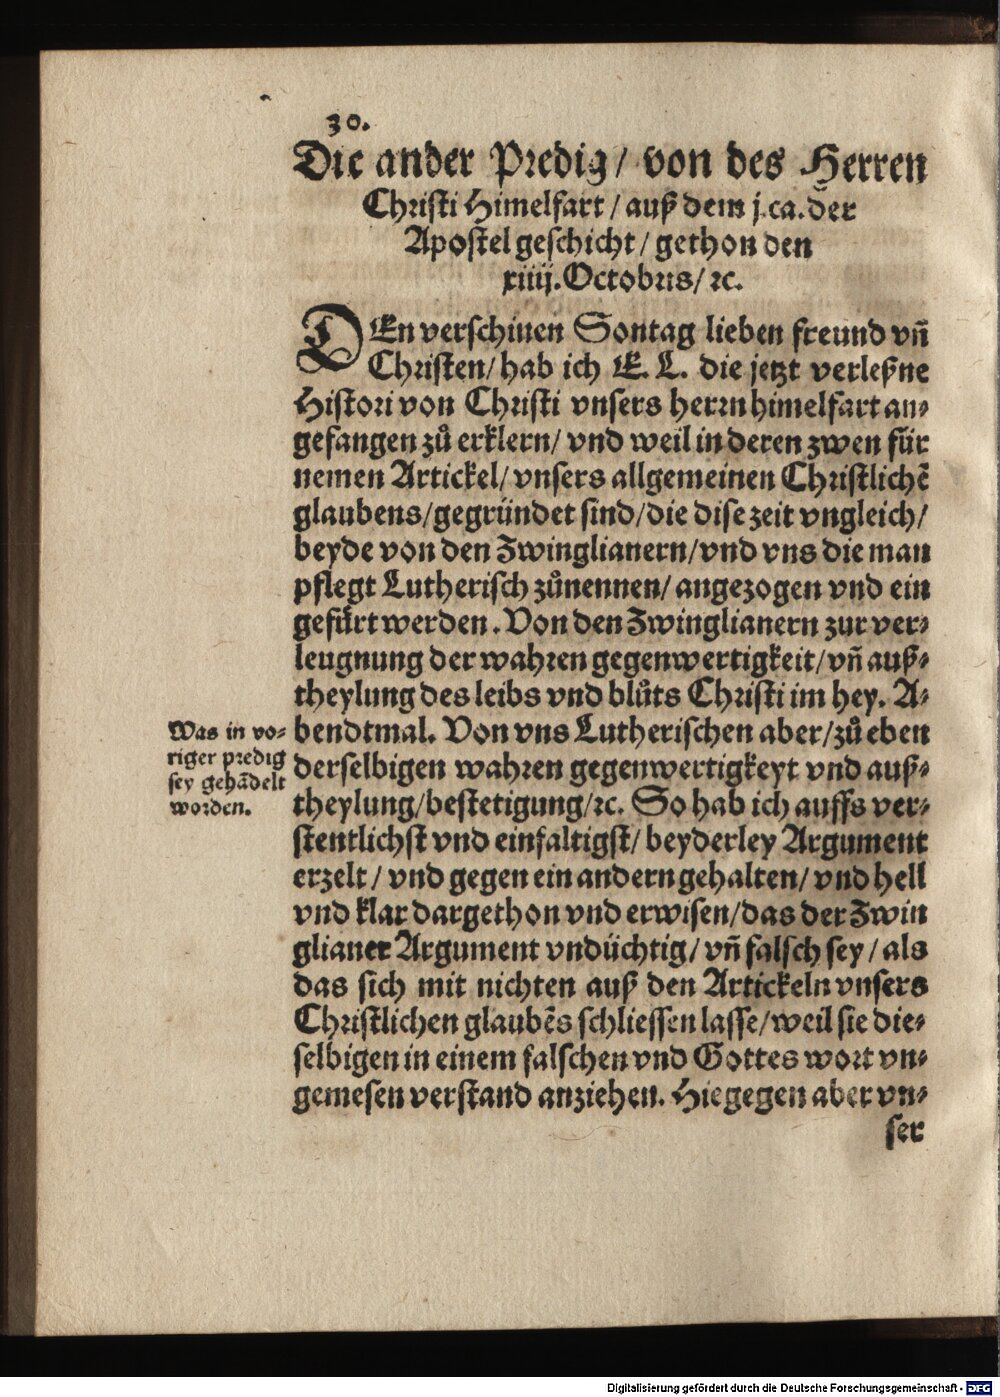 30.
Die ander Predig/ von des Herren
Christi Himelfart/ auß dem j.ca.der
Apostel geschicht/ gethon den
xiiij.Octobris/ ꝛc.
DEn verschinen Sontag lieben freund vñ
Christen/ hab ich E. L. die jetzt verleßne
Histori von Christi vnsers herrn himelfart an⸗
gefangen zů erklern/ vnd weil in deren zwen für
nemen Artickel/ vnsers allgemeinen Christlichẽ
glaubens/gegründet sind/die dise zeit vngleich/
beyde von den Zwinglianern/vnd vns die man
pflegt Lutherisch zůnennen/ angezogen vnd ein
gefürt werden. Von den Zwinglianern zur ver⸗
leugnung der wahren gegenwertigkeit/vñ auß⸗
theylung des leibs vnd blůts Christi im hey. A⸗
bendtmal. Von vns Lutherischen aber/zů eben
derselbigen wahren gegenwertigkeyt vnd auß⸗
theylung/bestetigung/ꝛc. So hab ich auffs ver⸗
stentlichst vnd einfaltigst/ beyderley Argument
erzelt/ vnd gegen ein andern gehalten/ vnd hell
vnd klar dargethon vnd erwisen/das der Zwin
glianer Argument vndüchtig/ vñ falsch sey/ als
das sich mit nichten auß den Artickeln vnsers
Christlichen glaubẽs schliessen lasse/weil sie die⸗
selbigen in einem falschen vnd Gottes wort vn⸗
gemesen verstand anziehen. Hiegegen aber vn⸗
ser
Was in vo⸗
riger predig
sey gehãdelt
worden.
Digitalisierung gefördert durch die Deutsche Forschungsgemeinschaft - DFG